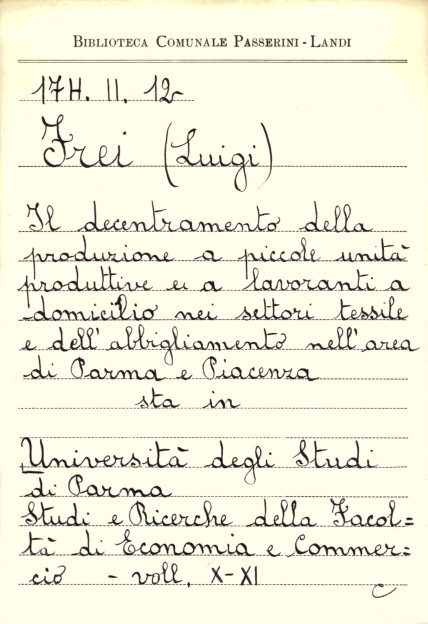 BIBLIOTECA COMUNALE PASSERINI - LANDI
17H. II. 12
Frei (Luigi)
Il decentramento della
produzione a piccole unità
produttive e a lavoranti a
domicilio nei settori tessile
e dell'abbigliamento nell'area
di Parma e Piacenza
sta in
Università degli Studi
di Parma
Studi e Ricerche della Facol=
tà di Economia e Commer=
cio - voll. X-XI
C